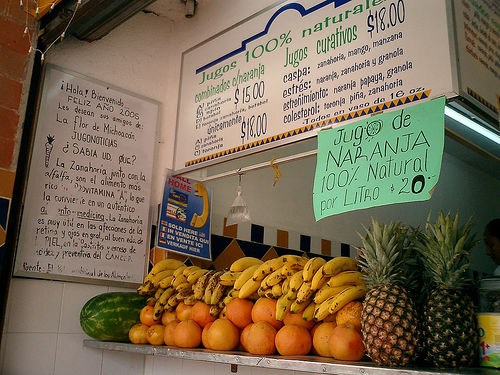 ¡Hola! Bienvenido
FELIZ AÑO 2006
Les desean sus amigos de:
La Flor de Michoacán.
JUGONOTICIAS
¿SABIA UD. QUE?
La Zanahoria junto con la
alfalfa, son el alimento más
rico VITAMINA "A", lo
que la convierte en un auténtico
medicina. La Zanahoria
es muy útil en las afecciones de la
retina y ojos en gral, al buen edo. de
PIEL, en la
y preventiva del CANCER.
Fuente:
Jugos 100% naturales
combinados c/naranja
$15.00
únicamente
$18.00
Jugos curativos $18.00
caspa: zanahoria, mango, manzana
estrés: naranja, zanahoria y granola
estreñimiento: naranja papaya, granola
colesterol: toronja piña, zanahoria
Todos en vaso de 16 oz.
Jugo de
NARANJA
100% Natural
por Litro $20.
HOME
SOLD HERE
IN VENDITA QUI
EN VENTE ICI
VERKAUF HIER